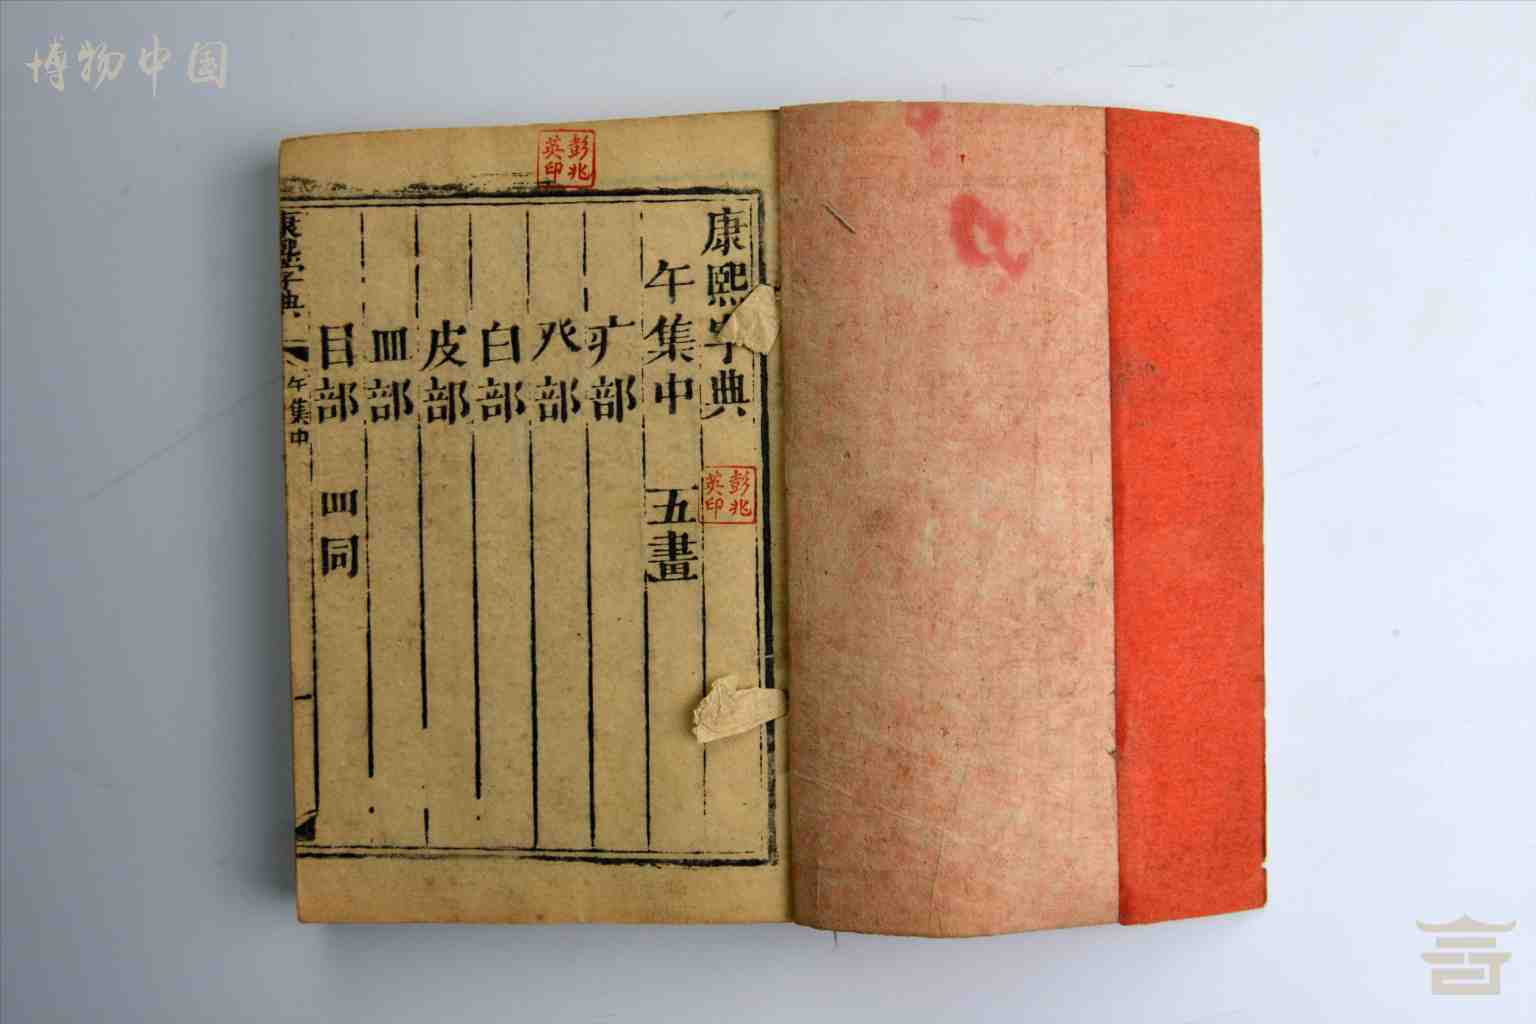 博物中国
康熙字典
午集中 五畫
疒部
癶部
白部
皮部
皿部
目部 罒同
康熙字典 午集中
彭兆英印
彭兆英印